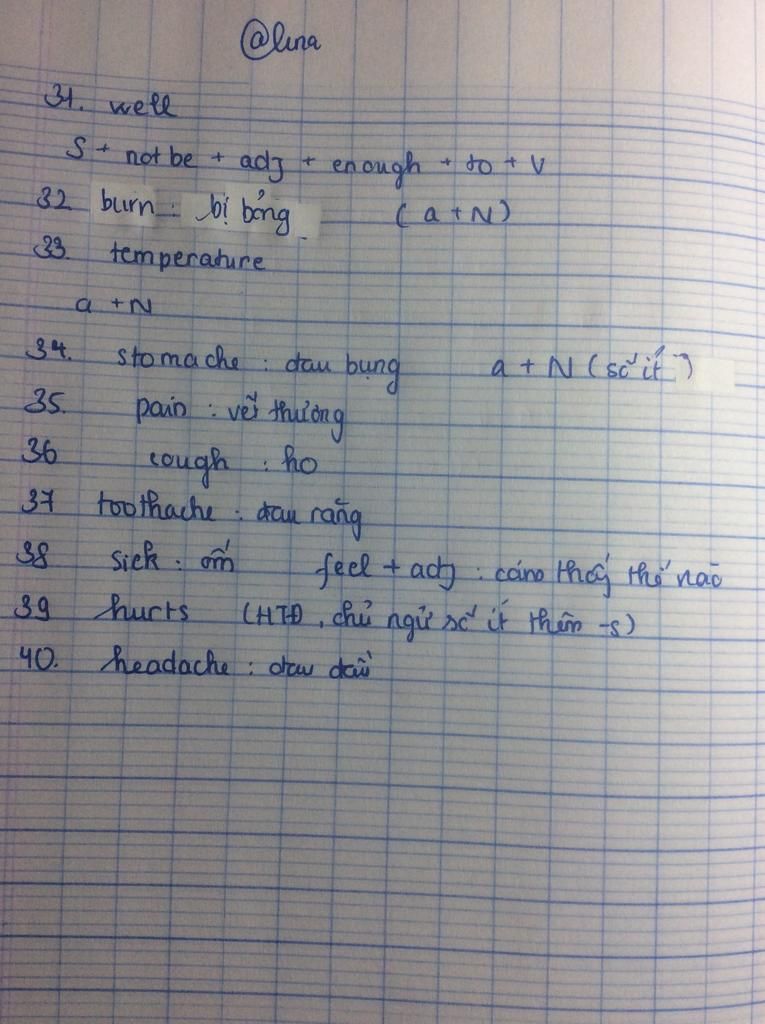 @lina
31. well
S + not be + adj + enough + to + V
32 burn : bị bỏng (a + N)
33 temperature
a + N
34. stomache : đau bụng a + N (số ít)
35. pain : vết thương
36 cough : ho
37 toothache : đau răng
38 sick : ốm feel + adj : cảm thấy thế nào
39 hurts (HTĐ, chủ ngữ số ít thêm -s)
40. headache : đau đầu